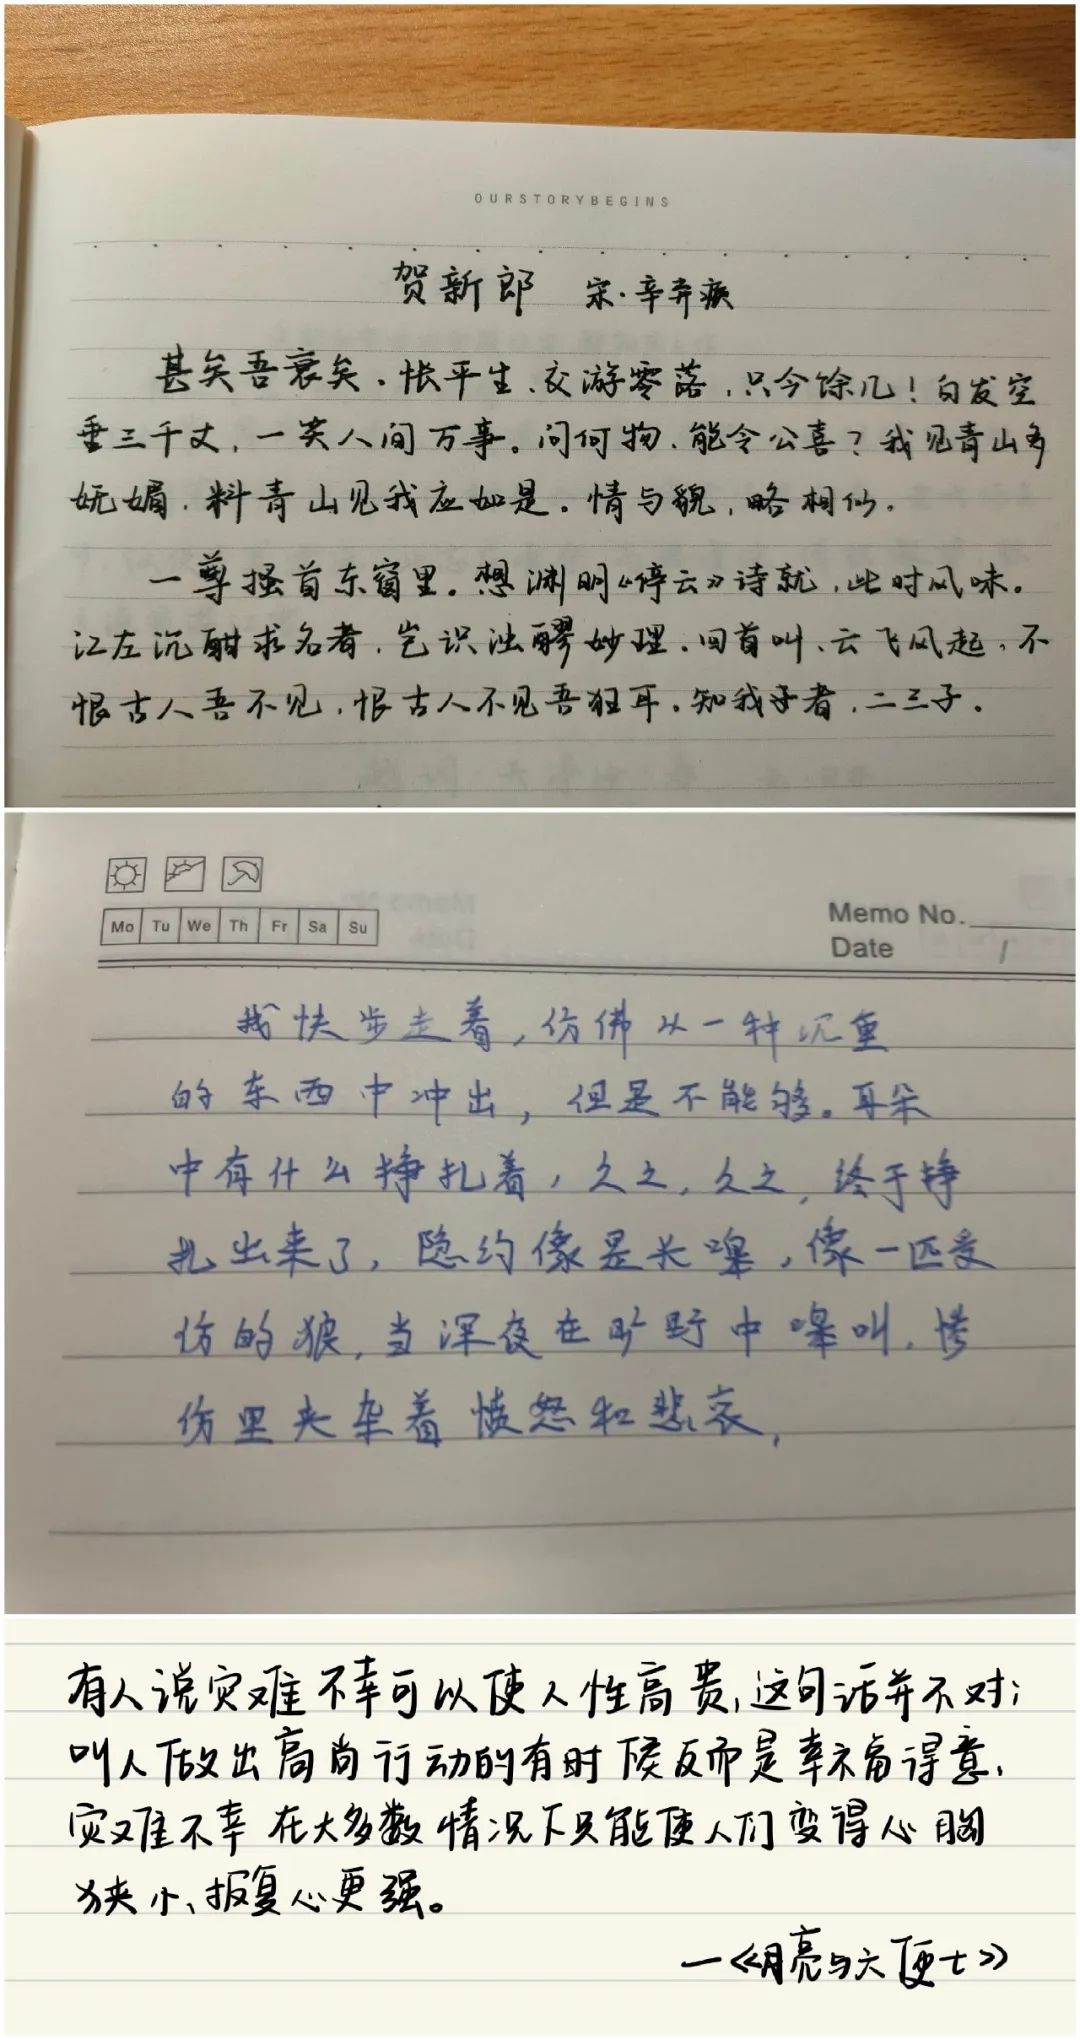 OURSTORYBEGINS
贺新郎 宋·辛弃疾
甚矣吾衰矣。怅平生、交游零落，只今馀几！白发空
垂三千丈，一笑人间万事。问何物、能令公喜？我见青山多
妩媚，料青山见我应如是。情与貌，略相似。
一尊搔首东窗里。想渊明《停云》诗就，此时风味。
江左沉酣求名者，岂识浊醪妙理。回首叫、云飞风起。不
恨古人吾不见，恨古人不见吾狂耳。知我者，二三子。
Mo Tu We Th Fr Sa Su
Memo No.
Date /
我快步走着，仿佛从一种沉重
的东西中冲出，但是不能够。耳朵
中有什么挣扎着，久之，久之，终于挣
扎出来了，隐约像是长嗥，像一匹受
伤的狼，当深夜在旷野中嗥叫，惨
伤里夹杂着愤怒和悲哀，
有人说灾难不幸可以使人性高贵，这句话并不对；
叫人做出高尚行动的有时候反而是幸福得意，
灾难不幸在大多数情况下只能使人们变得心胸
狭小、报复心更强。
—《月亮与六便士》